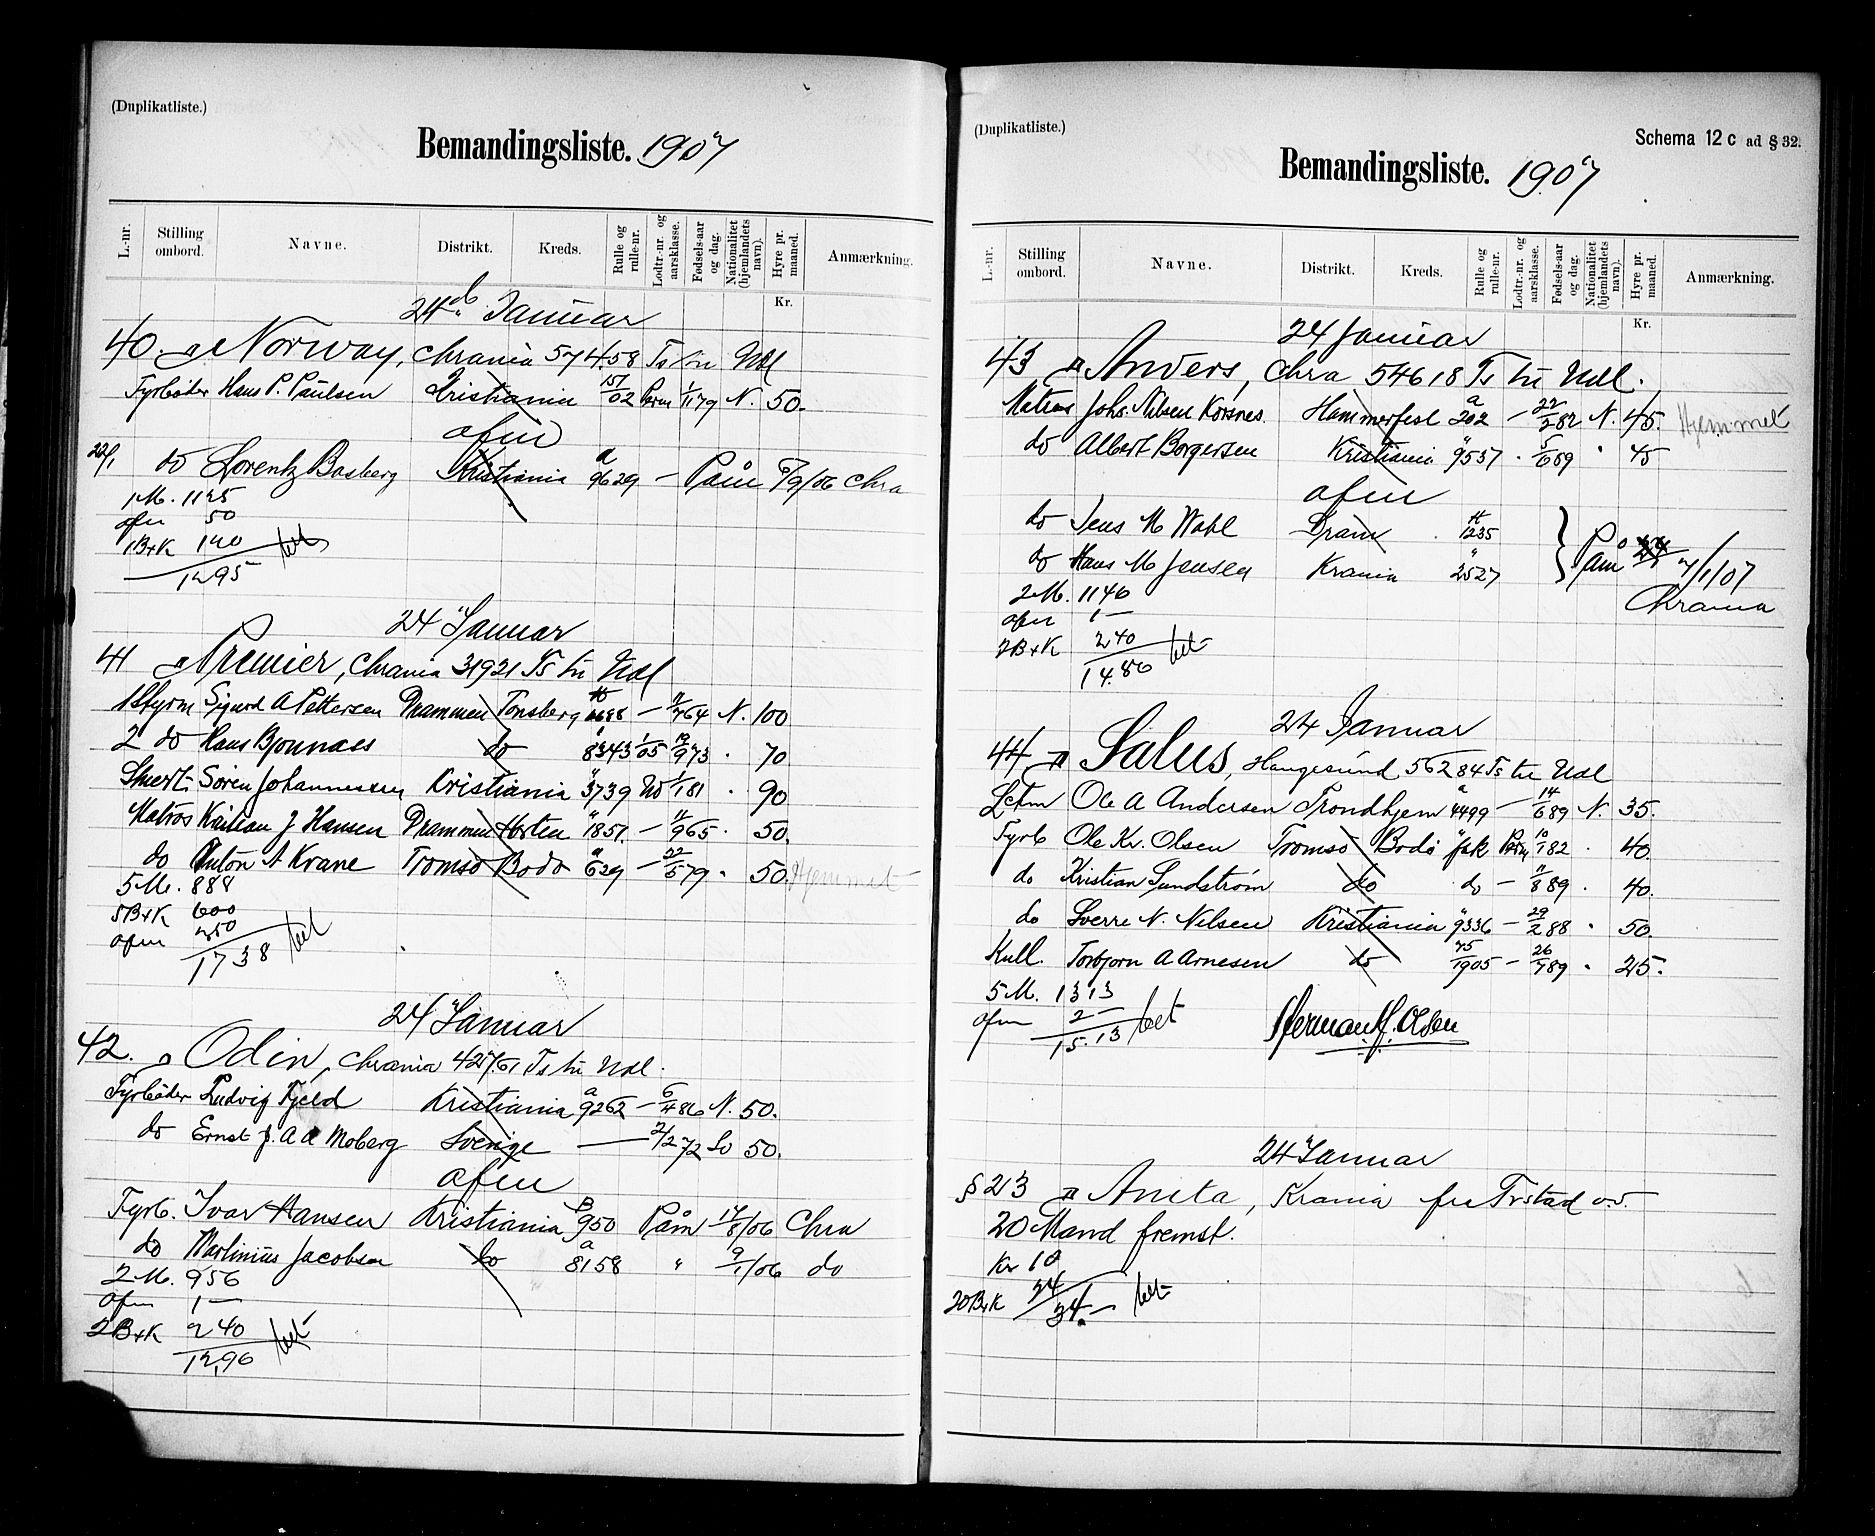 (Duplikatliste.)
Bemandingsliste. 1907
L.-nr. Stilling ombord. Navne. Distrikt. Kreds. Rulle og rulle-nr. Lodtr.-nr. og aarsklasse. Fødsels-aar og dag. Nationalitet (hjemlandets navn). Hyre pr. maaned. Anmærkning.
Kr.
24 Januar
40. Norway, Chrania 57458 Ts til Udl
Fyrbøder Hans P. Paulsen Kristiania 02 1/11 79 N. 50.
afm
22/1 do Lorentz Basberg Kristiania a 9629 — Påm /9/06 Chra
1 M. 1125
afm 50
1 B+K 120 bet
1295
24 Januar
41 Premier, Chrania 31921 Ts til Udl
1 Styrm Sigurd A Pettersen Drammen Tønsberg — 11/7 64 N. 100
2 do Hans Bjonnaes do 8343 1/05 19/9 73 70
Søren Johannessen Kristiania 3739 1/1 81 90
Matros J Hansen Drammen Horten 1851 — 11/9 65 50.
do Anton A Krane Tromsø Bodø a 629 — 22/5 79 50. Hjemmet
5 M. 888
5 B+K 600
afm 250 bet
1738
24 Januar
42. Odin, Chrania 42561 Ts til Udl.
Fyrbøder Ludvig Fjeld Kristiania a 9262 — 6/4 86 N. 50.
do Ernst J. A Moberg Sverige — 2/2 72 Sv 50.
afm
Fyrb. Ivar Hansen Kristiania B 950 Påm 17/8/06 Chra
do Martinius Jacobsen do a 8158 " 9/1/06 do
2 M. 956
afm 1—
2 B+K 240 bet
12,96
(Duplikatliste.)
Schema 12 c ad § 32.
Bemandingsliste. 1907
L.-nr. Stilling ombord. Navne. Distrikt. Kreds. Rulle og rulle-nr. Lodtr.-nr. og aarsklasse. Fødsels-aar og dag. Nationalitet (hjemlandets navn). Hyre pr. maaned. Anmærkning.
Kr.
24 Januar
43 Anvers, Chra 54618 Ts til Udl.
Matros Johs. Nilsen Korsnes. Hammerfest a 202 — 22/2 82 N. 45. Hjemmet
do Albert Borgersen Kristiania " 9537 . 5/6 89 " 45
afm
do Jens M Wahl Dram 1235
do Hans M Jensen Krania " 2527 } Påm 7/1/07
Chrania
2 M. 1146
afm 1—
2 B+K 240 bet
14.86
24 Januar
44 Salus, Haugesund 56284 Ts til Udl
Ole A Andersen Trondhjem a 4499 — 14/6 89 N. 35.
Fyrb Ole Kr. Olsen Tromsø Bodø 10/1 82 . 40.
do Kristian Sundstrøm do do — 11/8 89 . 40.
do Sverre N. Nilsen Kristiania " 9336 — 29/2 88 . 50.
Kull. Torbjørn A Arnesen do 75/1905 — 26/7 89 . 25.
5 M. 1313
afm 2— bet
15.13
Herman H. Olsen
24 Januar
§ 23 Anita, Krania fra Ørstad o.s.
20 Mand fremst.
Kr 10
20 B+K 24 bet
34.—